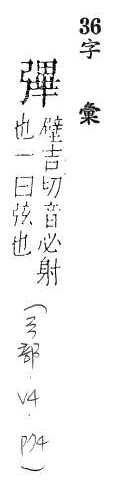 36字彙
彃
壁吉切音必射
也一曰弦也
(弓部．V4．P74)